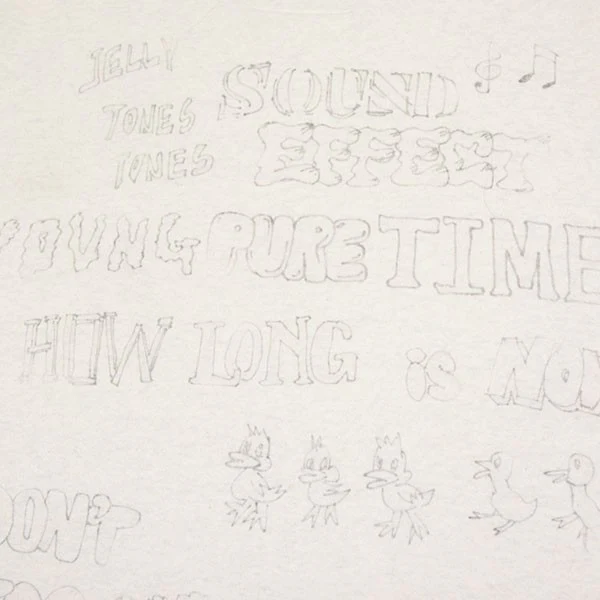 JELLY
TONES
TONES
SOUND
EFFECT
YOUNG PURE TIME
HOW LONG is NOW
DON'T